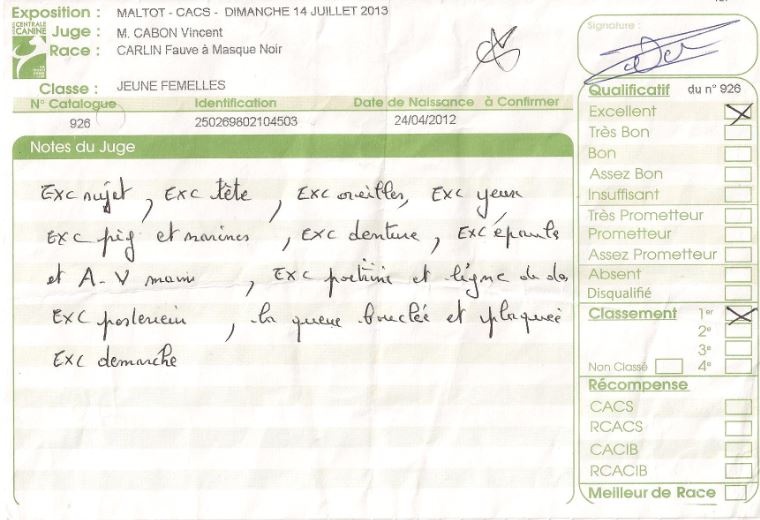 Exposition : MALTOT - CACS - DIMANCHE 14 JUILLET 2013
CENTRALE
CANINE
Juge : M. CABON Vincent
Race : CARLIN Fauve à Masque Noir
Classe : JEUNE FEMELLES
N° Catalogue Identification Date de Naissance à Confirmer
926 250269802104503 24/04/2012
Notes du Juge
Exc sujet, Exc tête, Exc oreilles, Exc yeux
Exc pig et narines, Exc denture, Exc épaule
et A-V main, Exc poitrine et ligne de dos
Exc posterieur, la queue bouclée et plaquée
Exc demarche
Signature :
Qualificatif du n° 926
Excellent
Très Bon
Bon
Assez Bon
Insuffisant
Très Prometteur
Prometteur
Assez Prometteur
Absent
Disqualifié
Classement 1er
2e
3e
Non Classé 4e
Récompense
CACS
RCACS
CACIB
RCACIB
Meilleur de Race